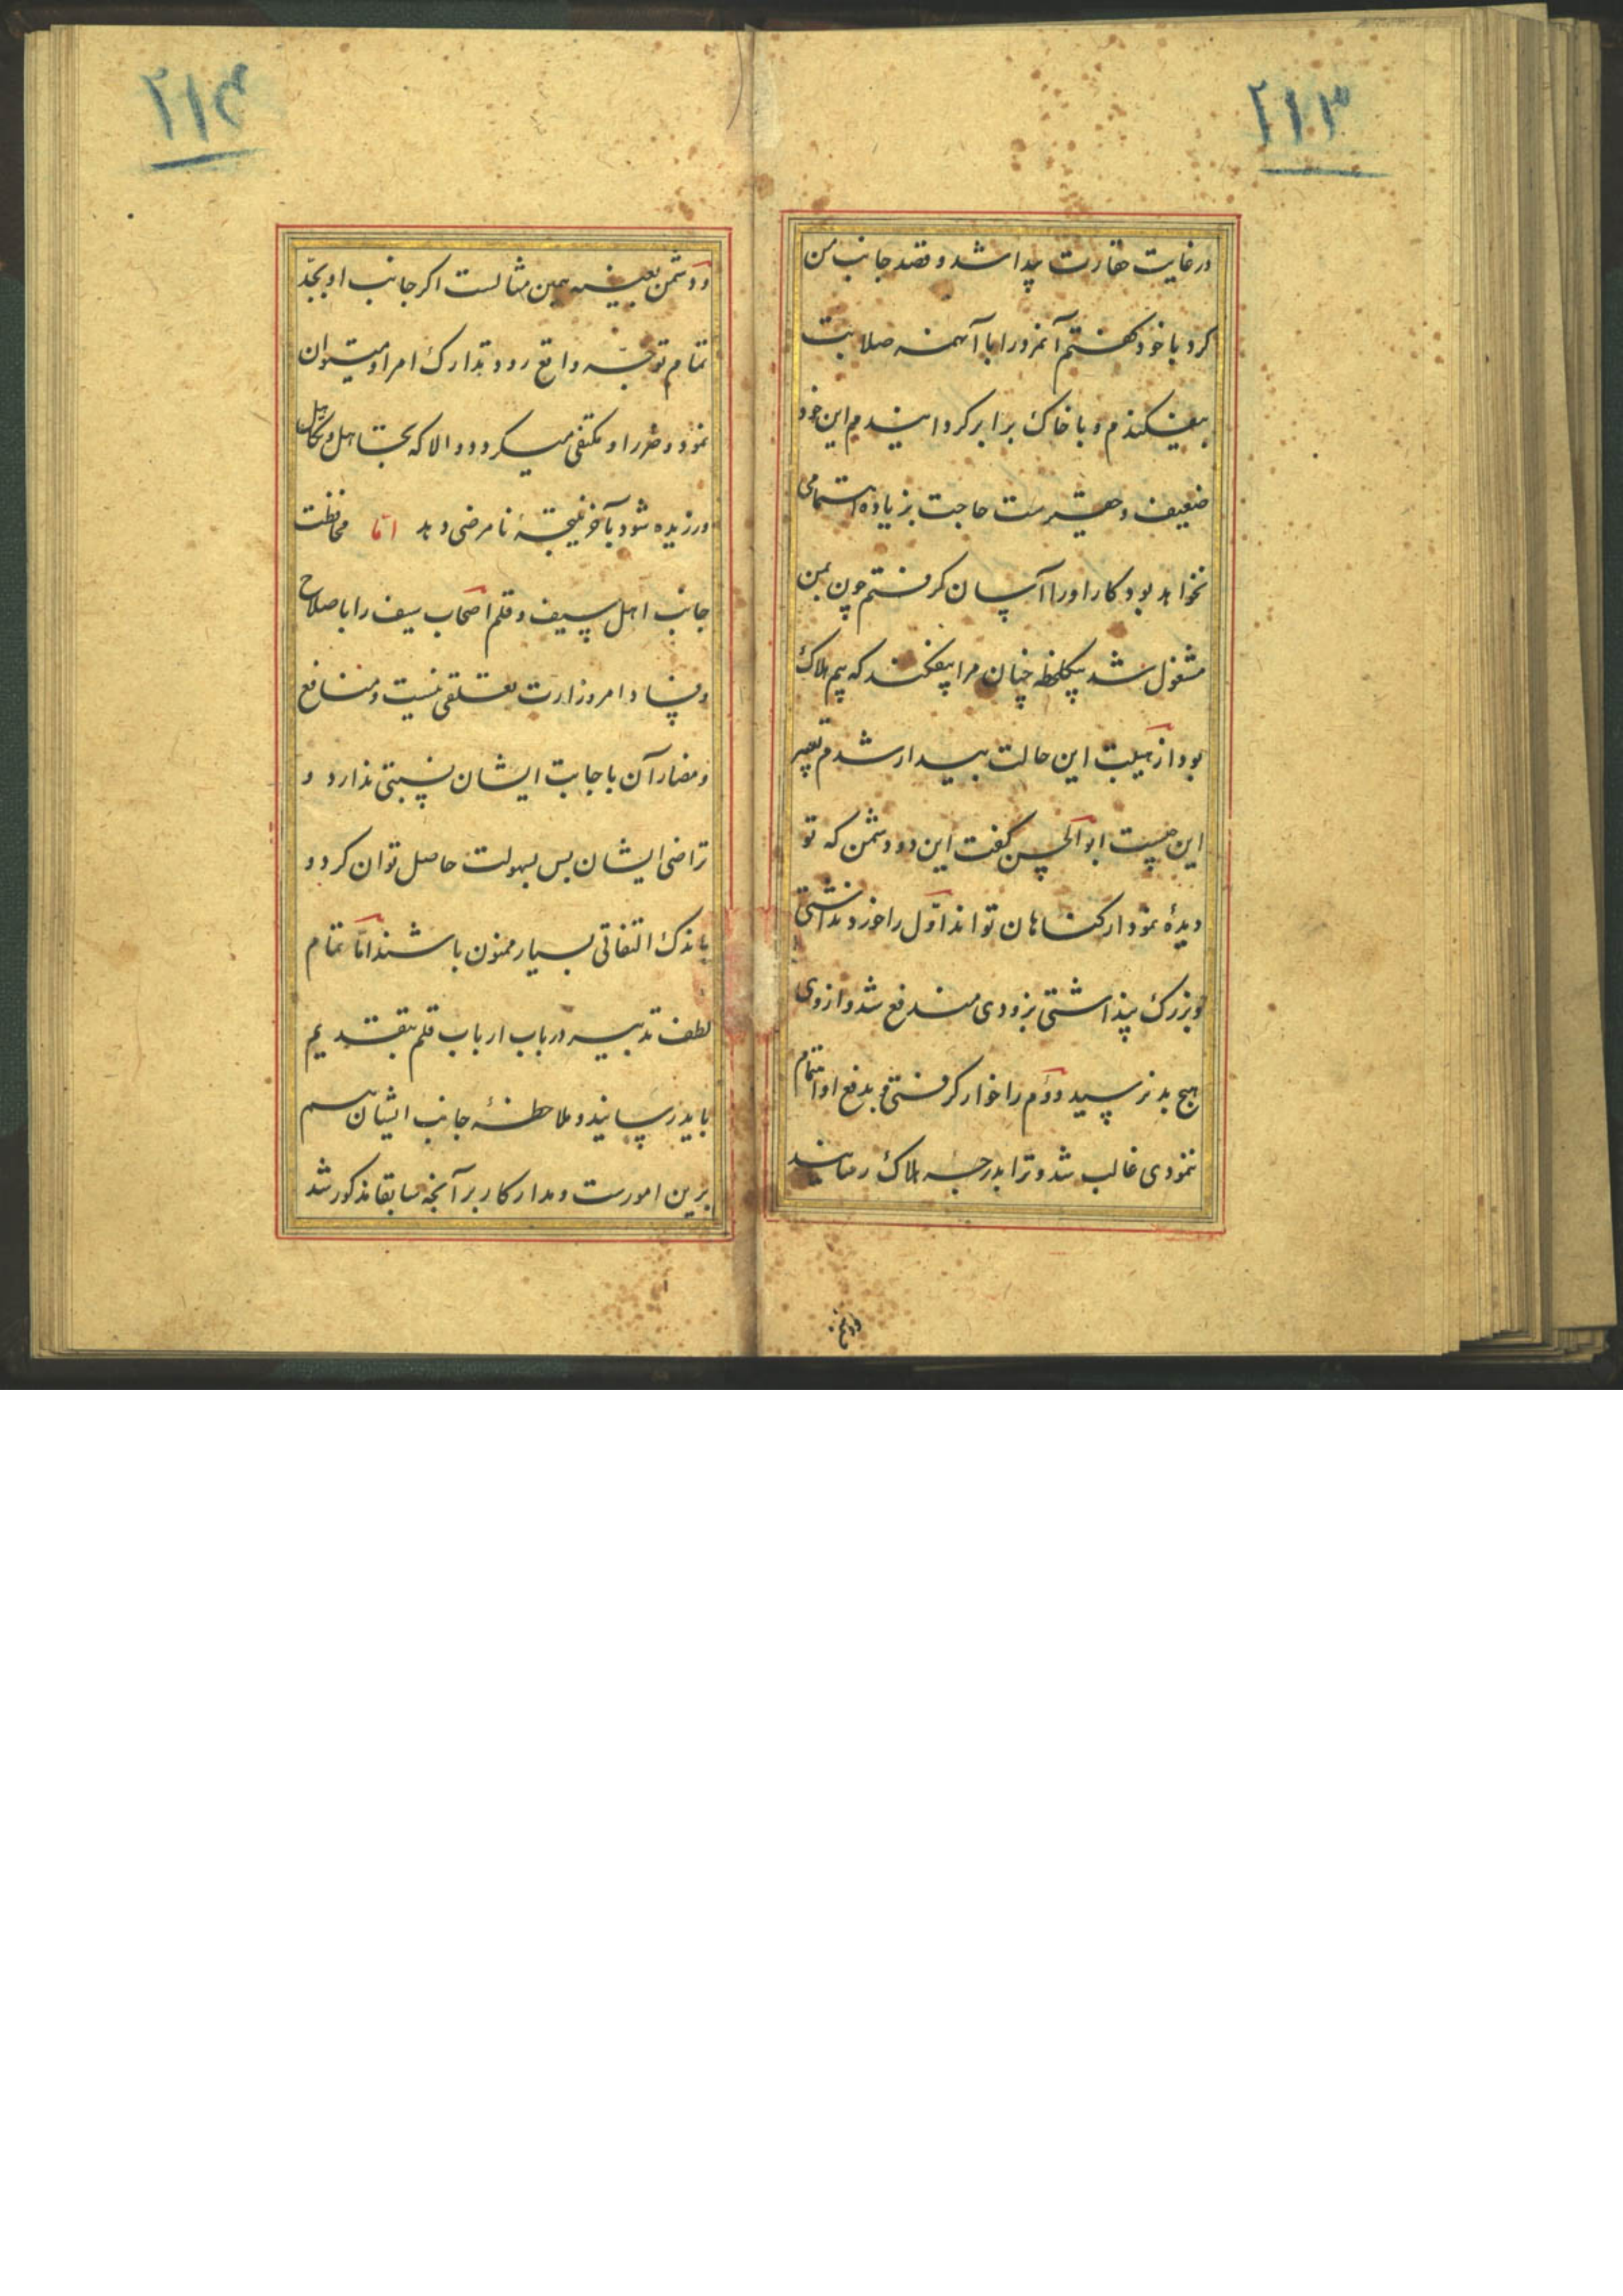 ۲۱۳
در غایت حقارت پیدا شد و قصد جانب من
کرد با خود کفتم آنمرد را با آنهمه صلابت
بیفیکندم و با خاک برابر کردانیدم این خود
ضعیف و حقیرست حاجت بزیاده اهتمامی
نخواهد بود کار او را آسان کرفتم چون بمن
مشغول شد بیکلحظه چنان مرا بیفکند که بیم هلاک
بود از هیبت این حالت بیدار شدم تعبیر
این چیست ابو الحسن کفت این دو دشمن که تو
دیدهٔ نمودار کناهان تواند اوّل را خرد نداشتی
و بزرک پنداشتی بزودی مندفع شد و از وی
هیچ بد نرسید دوّم را خوار کرفتی و بدفع او اهتمام
ننمودی غالب شد و ترا بدرجهٔ هلاک رسانید
۲۱۴
و دشمن بعینه همین مثالست اکر جانب او بجدّ
تمام توجّه واقع رود تدارک امر او میتوان
نمود و ضرر او مکتفی میکردد و الا که بتجاهل و تکاهل
ورزیده شود بآخر نتیجهٔ نامرضی دهد امّا محافظت
جانب اهل سیف و قلم اصحاب سیف را با صلاح
و فساد امر وزارت تعلقی نیست و منافع
و مضار آن با جانب ایشان نسبتی ندارد و
تراضی ایشان بس بسهولت حاصل توان کرد و
باندک التفاتی بسیار ممنون باشند امّا تمام
لطف تدبیر در باب ارباب قلم بتقدیم
باید رسانید و ملاحظهٔ جانب ایشان هم
برین امورست و مدار کار بر آنچه سابقا مذکور شد